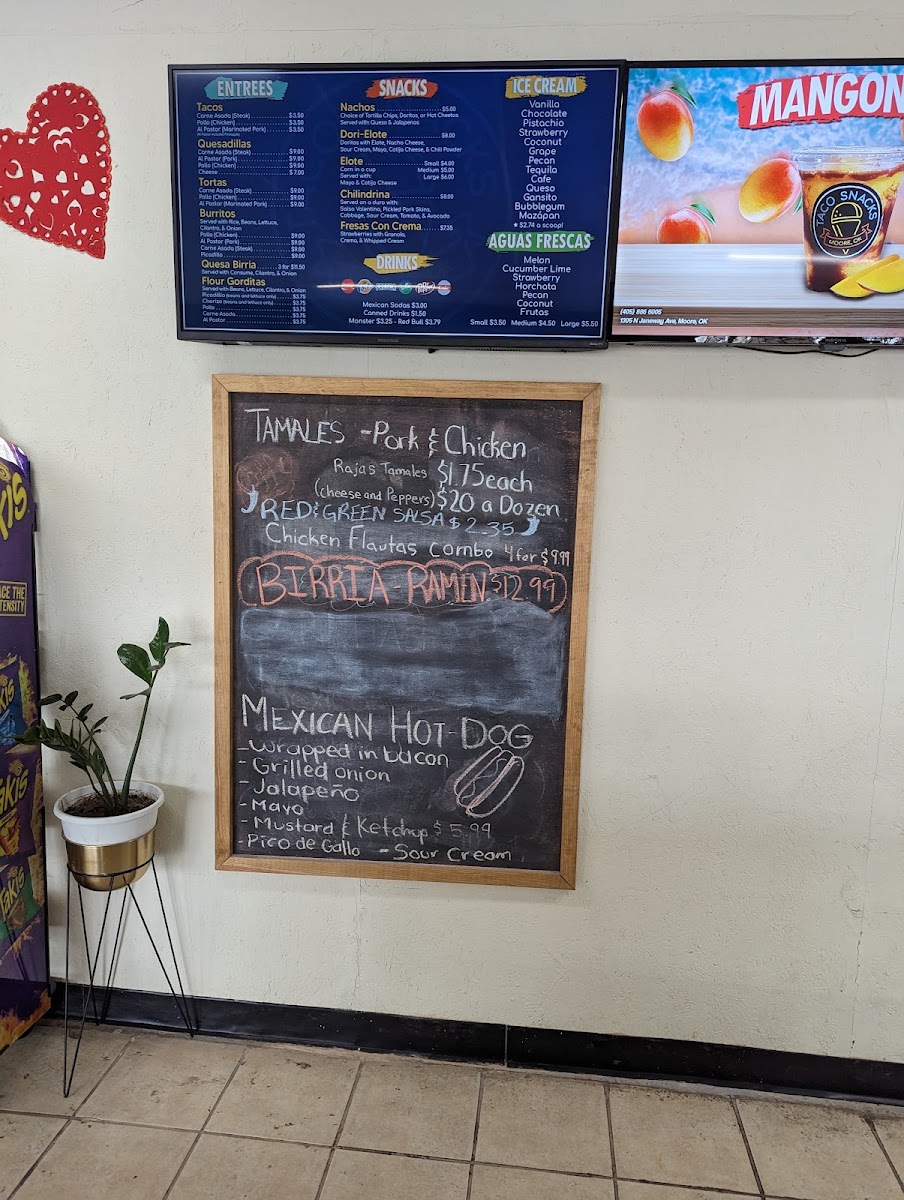 ENTREES
Tacos
Carne Asada (Steak) $3.50
Pollo (Chicken) $3.50
Al Pastor (Marinated Pork) $3.50
Quesadillas
Carne Asada (Steak) $9.00
Al Pastor (Pork) $9.00
Pollo (Chicken) $9.00
Cheese $7.00
Tortas
Carne Asada (Steak) $9.00
Pollo (Chicken) $9.00
Al Pastor (Marinated Pork) $9.00
Burritos
Served with Rice, Beans, Lettuce,
Cilantro, & Onion
Pollo (Chicken) $9.00
Al Pastor (Pork) $9.00
Carne Asada (Steak) $9.00
Picadillo $9.00
Quesa Birria 3 for $11.50
Served with Consume, Cilantro, & Onion
Flour Gorditas
Served with Beans, Lettuce, Cilantro, & Onion
Picadillo (beans and lettuce only) $3.75
Chorizo (beans and lettuce only) $3.75
Pollo $3.75
Carne Asada $3.75
Al Pastor $3.75
SNACKS
Nachos $5.00
Choice of Tortilla Chips, Doritos, or Hot Cheetos
Served with Queso & Jalapenos
Dori-Elote $8.00
Doritos with Elote, Nacho Cheese,
Sour Cream, Mayo, Cotija Cheese, & Chili Powder
Elote Small $4.00
Corn in a cup Medium $5.00
Served with: Large $6.00
Mayo & Cotija Cheese
Chilindrina $8.00
Served on a duro with:
Salsa Valentina, Pickled Pork Skins,
Cabbage, Sour Cream, Tomato, & Avocado
Fresas Con Crema $7.35
Strawberries with Granola,
Crema, & Whipped Cream
DRINKS
Mexican Sodas $3.00
Canned Drinks $1.50
Monster $3.25 - Red Bull $3.79
ICE CREAM
Vanilla
Chocolate
Pistachio
Strawberry
Coconut
Grape
Pecan
Tequila
Cafe
Queso
Gansito
Bubblegum
Mazápan
★ $2.74 a scoop!
AGUAS FRESCAS
Melon
Cucumber Lime
Strawberry
Horchata
Pecan
Coconut
Frutas
Small $3.50 Medium $4.50 Large $5.50
MANGON
TACO SNACKS
MOORE, OK
(405) 886 6005
1305 N Janeway Ave, Moore, OK
INSIGNIA
TAMALES - Pork & Chicken
Rajas Tamales $1.75 each
(cheese and Peppers) $20 a Dozen
RED & GREEN SALSA $2.35
Chicken Flautas combo 4 for $9.99
BIRRIA-RAMEN $12.99
MEXICAN HOT-DOG
- Wrapped in bacon
- Grilled onion
- Jalapeño
- Mayo
- Mustard & Ketchup $5.99
- Pico de Gallo - Sour Cream
Takis